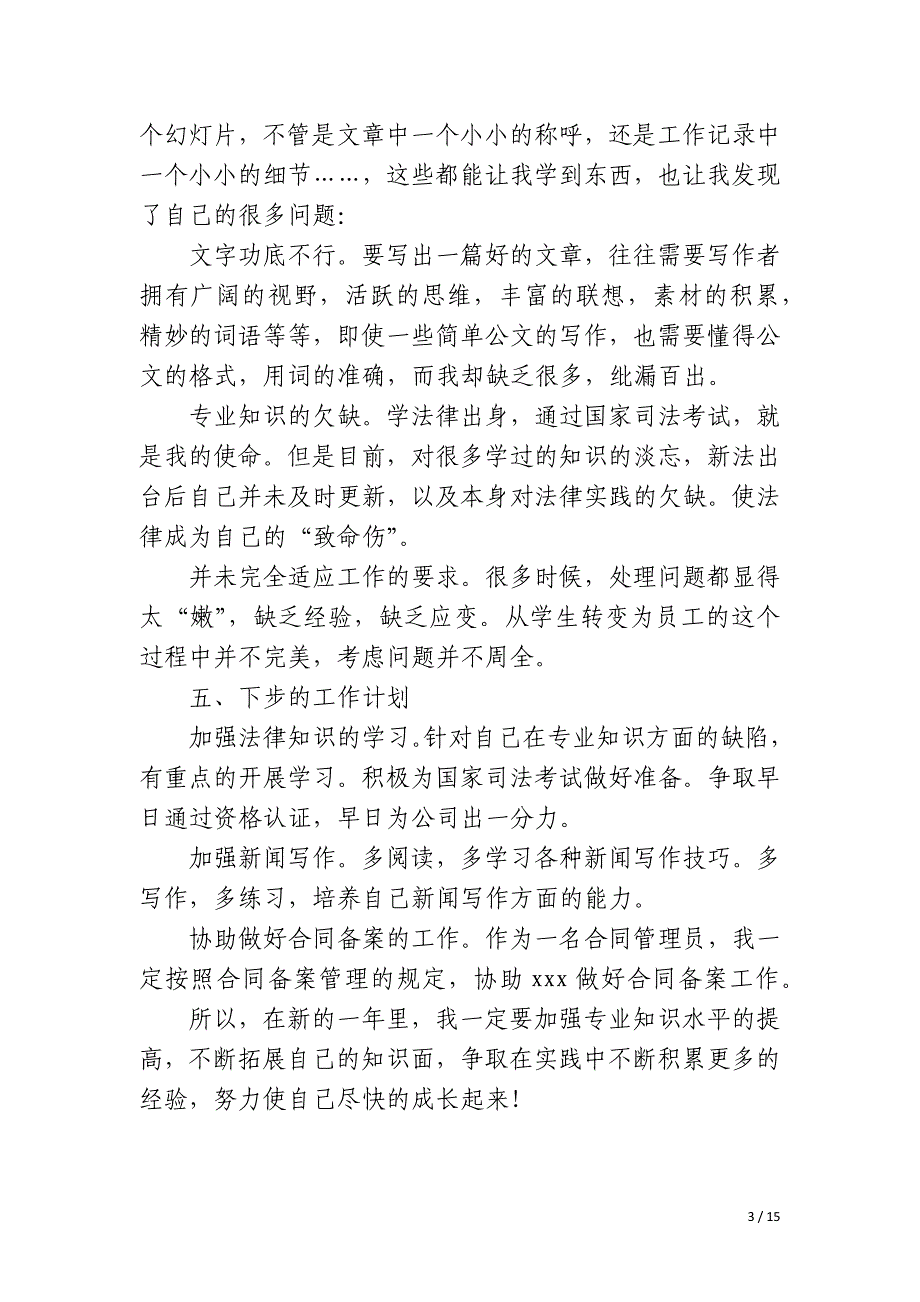 个幻灯片，不管是文章中一个小小的称呼，还是工作记录中
一个小小的细节……，这些都能让我学到东西，也让我发现
了自己的很多问题：
文字功底不行。要写出一篇好的文章，往往需要写作者
拥有广阔的视野，活跃的思维，丰富的联想，素材的积累，
精妙的词语等等，即使一些简单公文的写作，也需要懂得公
文的格式，用词的准确，而我却缺乏很多，纰漏百出。
专业知识的欠缺。学法律出身，通过国家司法考试，就
是我的使命。但是目前，对很多学过的知识的淡忘，新法出
台后自己并未及时更新，以及本身对法律实践的欠缺。使法
律成为自己的“致命伤”。
并未完全适应工作的要求。很多时候，处理问题都显得
太“嫩”，缺乏经验，缺乏应变。从学生转变为员工的这个
过程中并不完美，考虑问题并不周全。
五、下步的工作计划
加强法律知识的学习。针对自己在专业知识方面的缺陷，
有重点的开展学习。积极为国家司法考试做好准备。争取早
日通过资格认证，早日为公司出一分力。
加强新闻写作。多阅读，多学习各种新闻写作技巧。多
写作，多练习，培养自己新闻写作方面的能力。
协助做好合同备案的工作。作为一名合同管理员，我一
定按照合同备案管理的规定，协助 xxx 做好合同备案工作。
所以，在新的一年里，我一定要加强专业知识水平的提
高，不断拓展自己的知识面，争取在实践中不断积累更多的
经验，努力使自己尽快的成长起来！
3 / 15